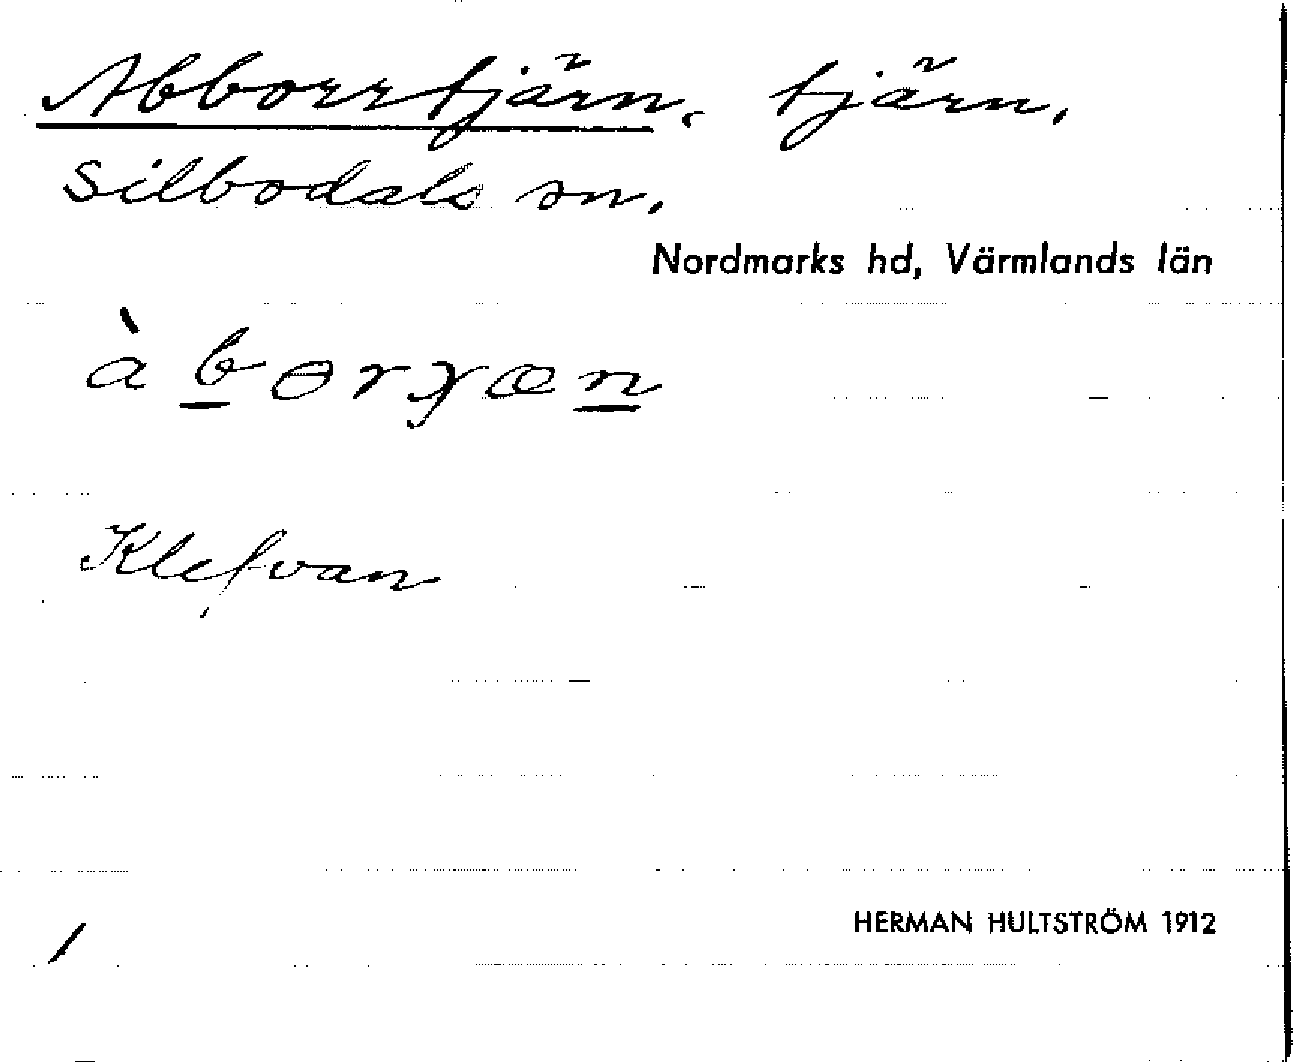 Abborrtjärn, tjärn,
Silbodals sn,
Nordmarks hd, Värmlands län
àbɵrɤæn
Klefvan
HERMAN HULTSTRÖM 1912
/